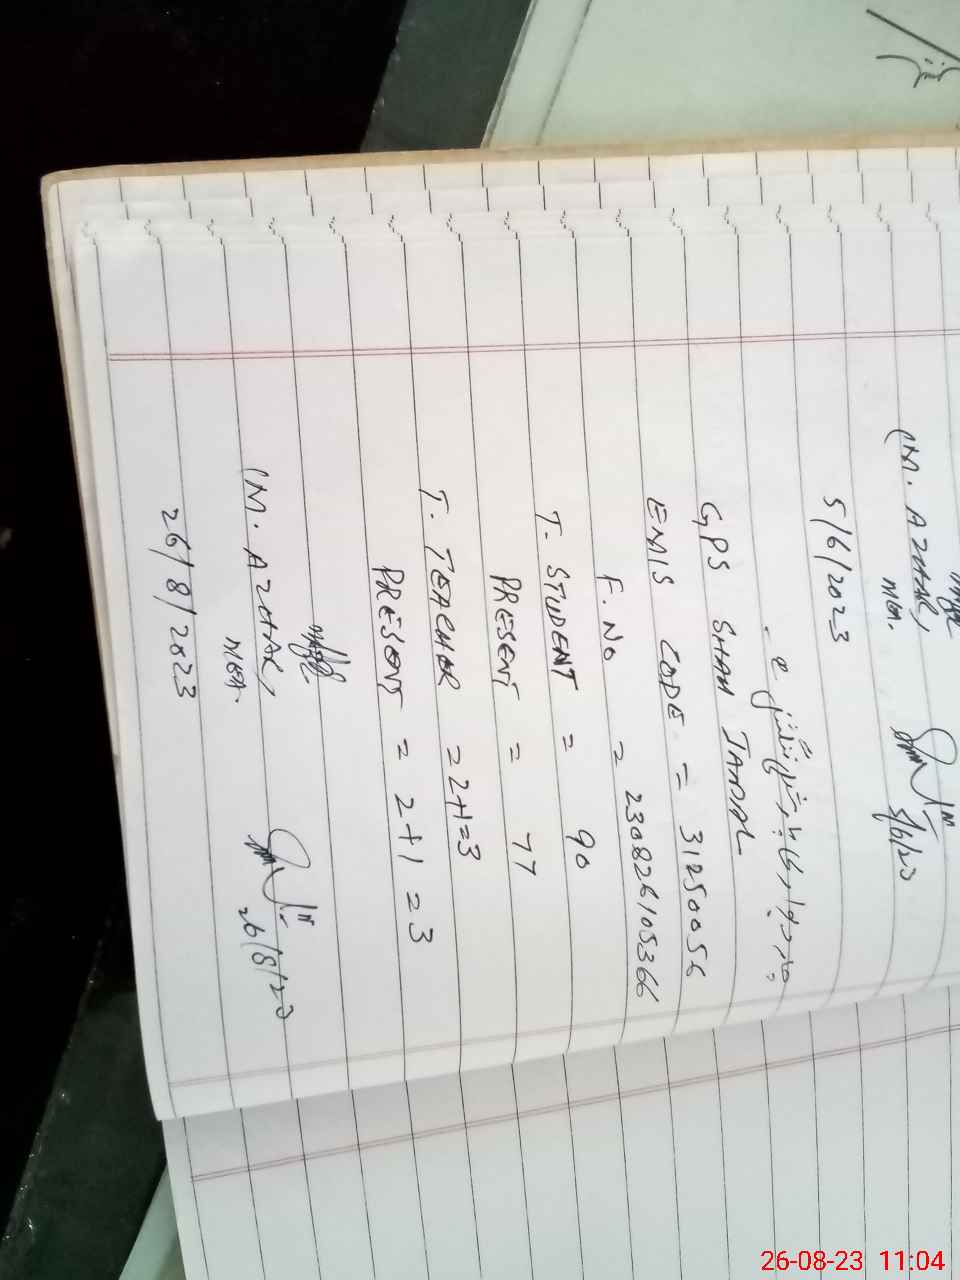 (M. AZHAR)
MEA.
5/6/2023
5/6/23
GPS SHAH JAMAL
EMIS CODE = 31250056
F. No = 230826105366
T. STUDENT = 90
PRESENT = 77
T. TEACHER = 2+1=3
PRESENT = 2+1=3
(M. AZHAR)
MEA.
26/8/23
26/8/2023
26-08-23 11:04